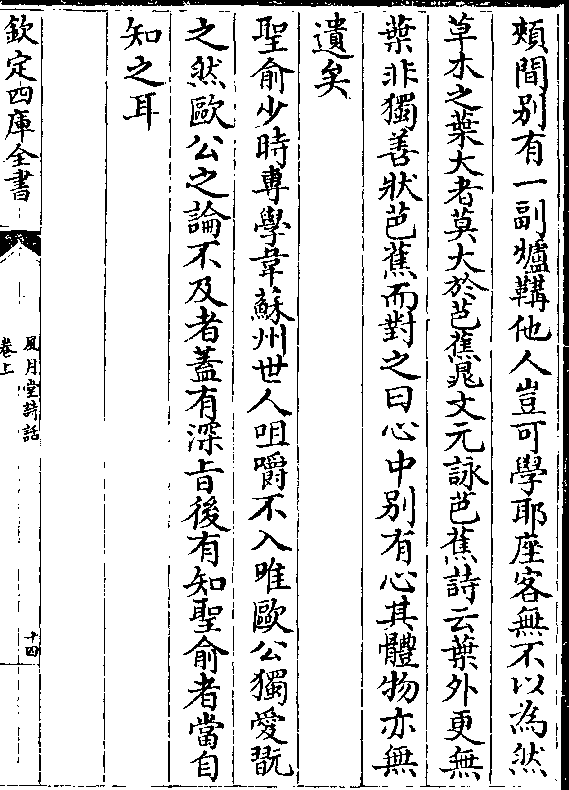 頰間别有一副爐鞲他人豈可學耶座客無不以為然
草木之葉大者莫大於芭蕉晁文元詠芭蕉詩云葉外更無
葉非獨善狀芭蕉而對之曰心中别有心其體物亦無
遺矣
聖俞少時専學韋蘇州世人咀嚼不入唯歐公獨愛翫
之然歐公之論不及者蓋有深㫖後有知聖俞者當自
知之耳
欽定四庫全書
風月堂詩話
卷上
十四